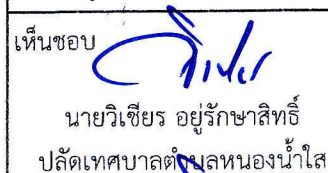 เห็นชอบ
นายวิเชียร อยู่รักษาสิทธิ์
ปลัดเทศบาลตำบลหนองน้ำใส